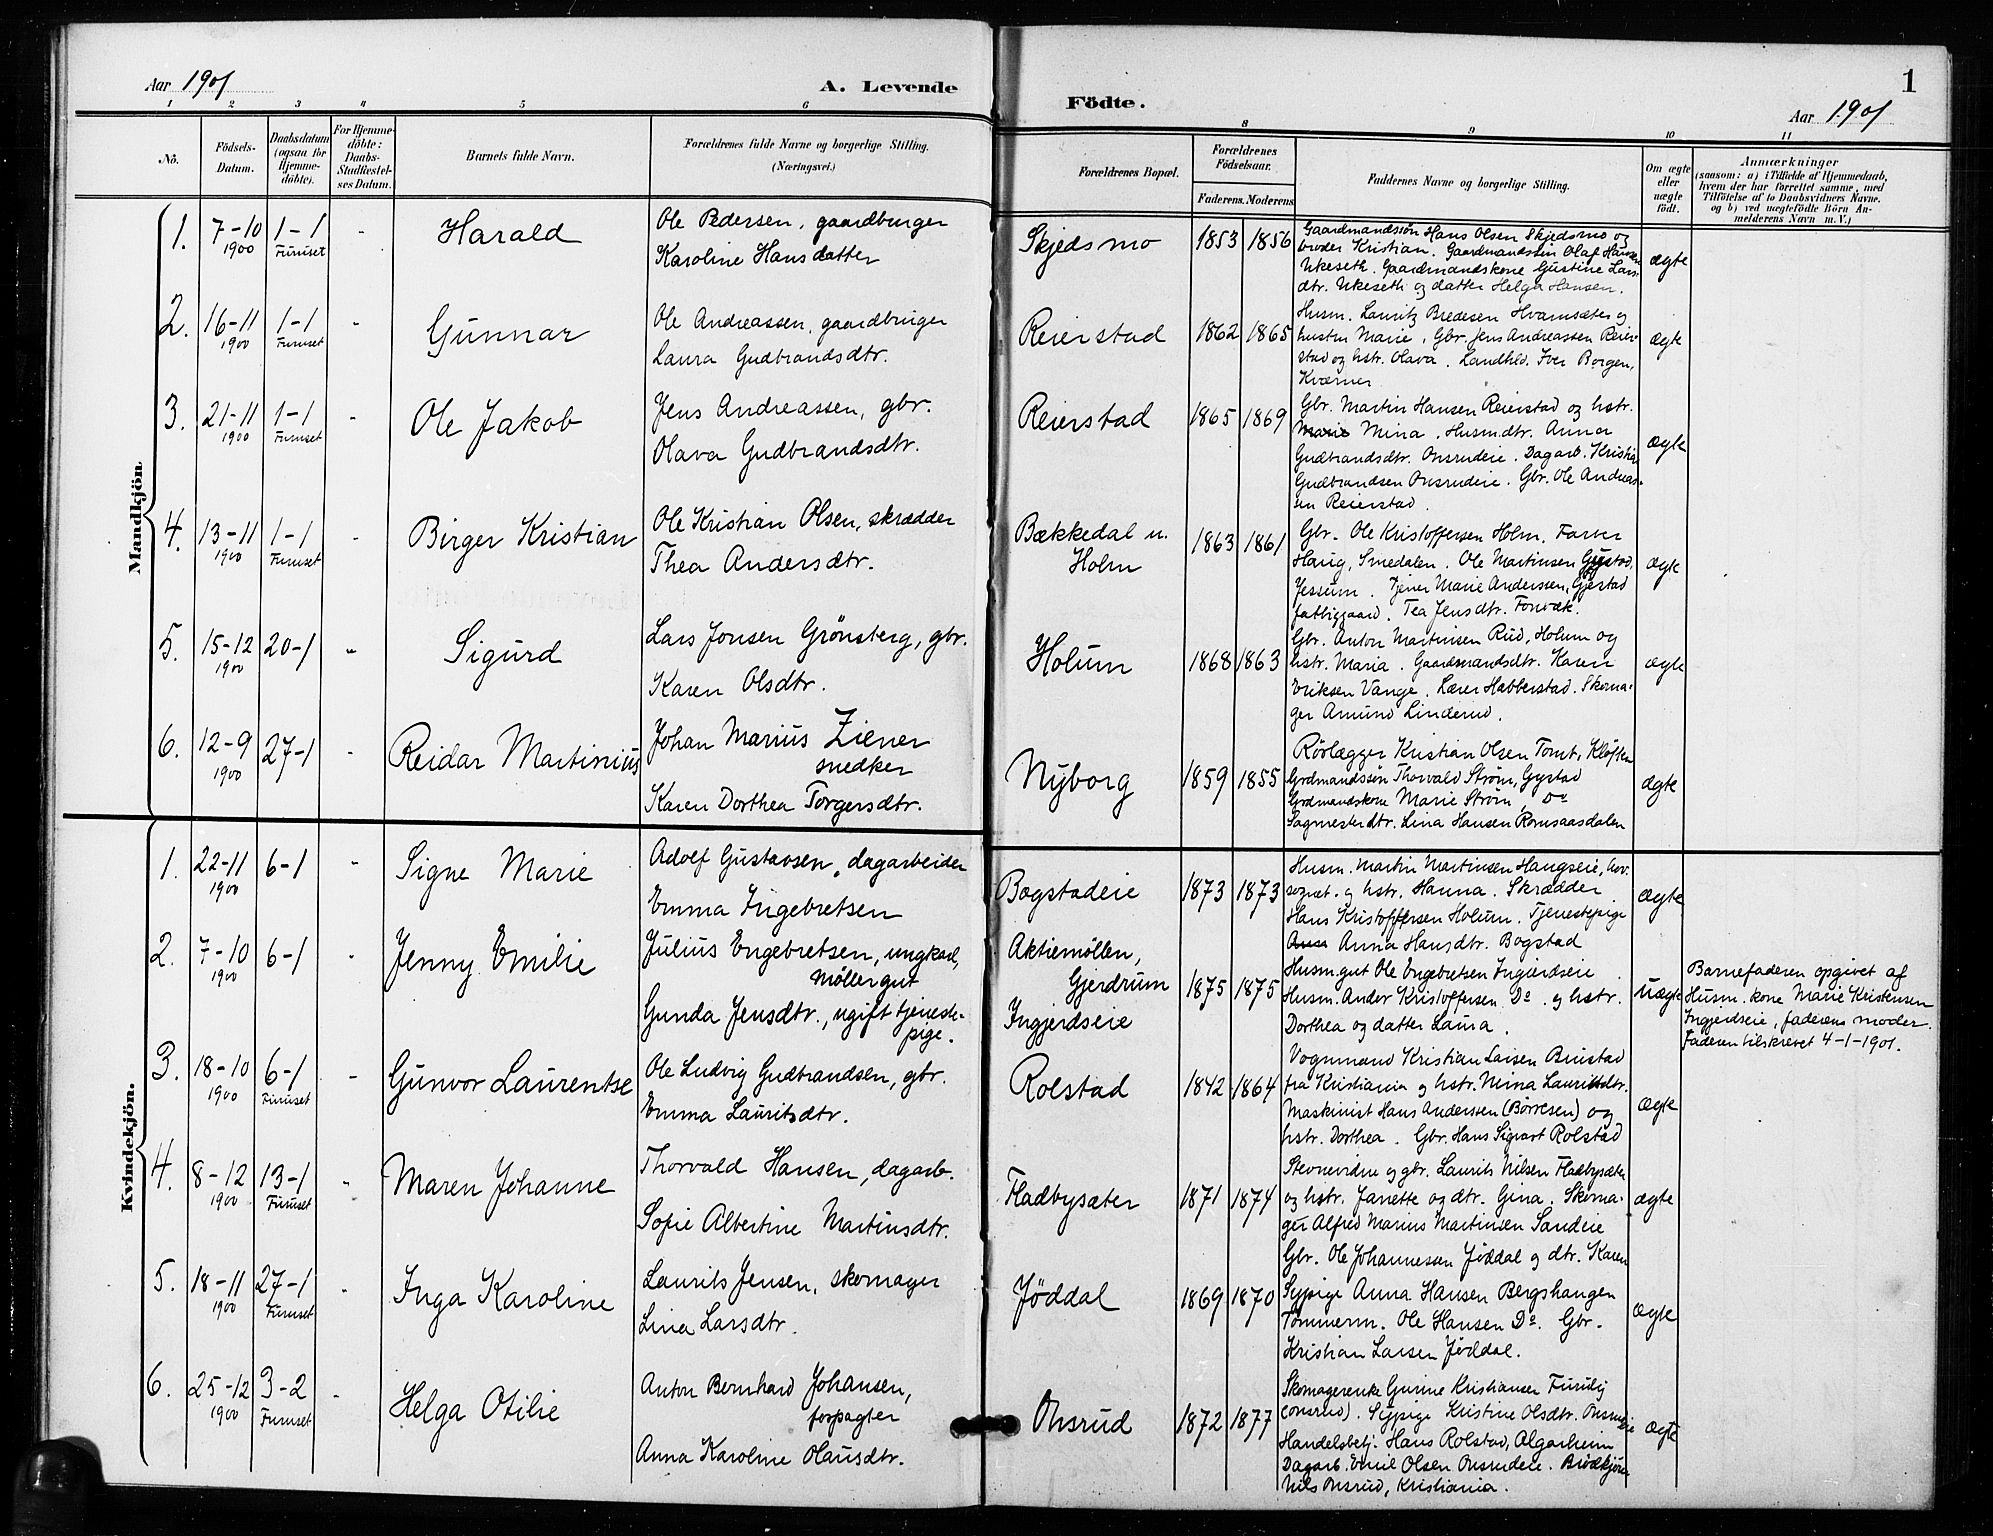 Aar 1901
A. Levende
1 2 3 4 5 6
Nô.
Födsels-
Datum.
Daabsdatum
(ogsaa for
Hjemme-
döbte).
For Hjemme-
döbte:
Daabs-
Stadfæstel-
ses Datum.
Barnets fulde Navn.
Forældrenes fulde Navne og borgerlige Stilling.
(Næringsvei.)
Mandkjön.
1. 7-10 1-1 " Harald
1900 Furuset
Ole Pedersen, gaardbruger
Karoline Hansdatter
2. 16-11 1-1 " Gunnar
1900 Furuset
Ole Andreassen, gaardbruger
Laura Gudbrandsdtr.
3. 21-11 1-1 " Ole Jakob
1900 Furuset
Jens Andreassen, gbr.
Olava Gudbrandsdtr.
4. 13-11 1-1 " Birger Kristian
1900 Furuset
Ole Kristian Olsen, skrædder
Thea Andersdtr.
5. 15-12 20-1 " Sigurd
1900
Lars Jonsen Grönsberg, gbr.
Karen Olsdtr.
6. 12-9 27-1 " Reidar Martinius
1900
Johan Marius Ziener
snedker
Karen Dorthea Torgersdtr.
Kvindekjön.
1. 22-11 6-1 " Signe Marie
1900
Adolf Gustavsen, dagarbeider
Emma Ingebretsen
2. 7-10 6-1 " Jenny Emilie
1900
Julius Engebretsen, ungkarl,
Möllergut
Gunda Jensdtr., ugift tjeneste-
pige.
3. 18-10 6-1 " Gunvor Laurentse
1900 Furuset
Ole Ludvig Gudbrandsen, gbr.
Emma Lauritsdtr.
4. 8-12 13-1 " Maren Johanne
1900 Furuset
Thorvald Hansen, dagarb.
Sofie Albertine Martinsdtr.
5. 18-11 27-1 " Inga Karoline
1900 Furuset
Laurits Jensen, skomager
Lina Larsdtr.
6. 25-12 3-2 " Helga Otilie
1900 Furuset
Anton Bernhard Johansen,
forpagter
Anna Karoline Olausdtr.
1
Födte.
Aar 1901
8 9 10 11
Forældrenes Bopæl.
Forældrenes
Födselsaar.
Faderens. Moderens
Faddernes Navne og borgerlige Stilling.
Om ægte
eller
uægte
födt.
Anmærkninger
(saasom: a) i Tilfælde af Hjemmedaab,
hvem der har forrettet samme, med
Tilföielse af to Daabsvidners Navne.
og b) ved uægtefödte Börn An-
melderens Navn m. V.)
Skjedsmo 1853 1856 ægte
Gaardmandssøn Hans Olsen Skjedsmo og
broder Kristian. Gaardmandssøn Olaf Hansen
Ukeseth. Gaardmandskone Gustine Lars-
dtr. Ukeseth og datter Helga Hansen.
Reierstad 1862 1865 ægte
Husm. Lauritz Bredesen Hvamsæter og
hustru Marie. Gbr. Jens Andreassen Reier-
stad og hstr. Olava. Landhld. Iver Borgen,
Kværner
Reierstad 1865 1869 ægte
Gbr. Martin Hansen Reierstad og hstr.
Marie Mina. Husmdtr. Anna
Gudbrandsdtr. Onsrudeie. Dagarb. Kristian
Gudbrandsen Onsrudeie. Gbr. Ole Andreas-
sen Reierstad.
Bækkedal u.
Holm 1863 1861 ægte
Gbr. Ole Kristoffersen Holm. Farver
Haug, Smedalen. Ole Martinsen Gjestad,
Jessum. Tjener Marie Anderssen, Gjestad
fattiggaard. Tea Jensdtr.
Holum 1868 1863 ægte
Gbr. Anton Martinsen Rud, Holum og
hstr. Maria. Gaardmandsdtr. Karen
Eriksen Vange. Lærer Habberstad. Skoma-
ger Amund Linderud.
Nyborg 1859 1855 ægte
Rörlægger Kristian Olsen Tomt, Kløften
Grdmandssøn Thorvald Strøm, Gystad
Grdmandskone Marie Strøm, Do
Sagmesterdtr. Lina Hansen Romsaasdalen
Bogstadeie 1873 1873 ægte
Husm. Martin Martinsen Haugseie, hov-
sognet. og hstr. Hanna. Skrædder
Hans Kristoffersen Holum. Tjenestepige
Anna Hansdtr. Bogstad
Aktiemøllen,
Gjerdrum 1875 1875 uægte
Ingjerdseie
Husm.gut Ole Engebretsen Ingjerdseie
Husm. Ander Kristoffersen Do. og hstr.
Dorthea og datter Laura.
Barnefaderen opgivet af
Husm. kone Marie Kristensen
Ingjerdseie, faderens moder.
Faderen tilskrevet 4-1-1901.
Rolstad 1842 1864 ægte
Vognmand Kristian Larsen Brustad
fra Kristiania og hstr. Nina Lauritsdtr.
Maskinist Hans Anderssen (Børresen) og
hstr. Dorthea. Gbr. Hans Sigvart Rolstad
Fladbysæter 1871 1874 ægte
Stevnevidne og gbr. Laurits Nilsen Fladbysæter
og hstr. Janette og dtr. Gina. Skoma-
ger Alfred Marius Martinsen Sandeie
Jöddal 1869 1870 ægte
Gbr. Ole Johannesen Jöddal og dtr. Karen
Sypige Anna Hansen Bergshaugen
Tömmerm. Ole Hansen Do. Gbr.
Kristian Larsen Jöddal.
Onsrud 1872 1877 ægte
Skomagerenke Gurine Kristiansen Furulij
(Onsrud). Sypige Kristine Olsdtr. Onsrudeie
Handelsbetj. Hans Rolstad, Algarheim
Dagarb. Emil Olsen Onsrudeie. Brödkjörer
Nils Onsrud, Kristiania.